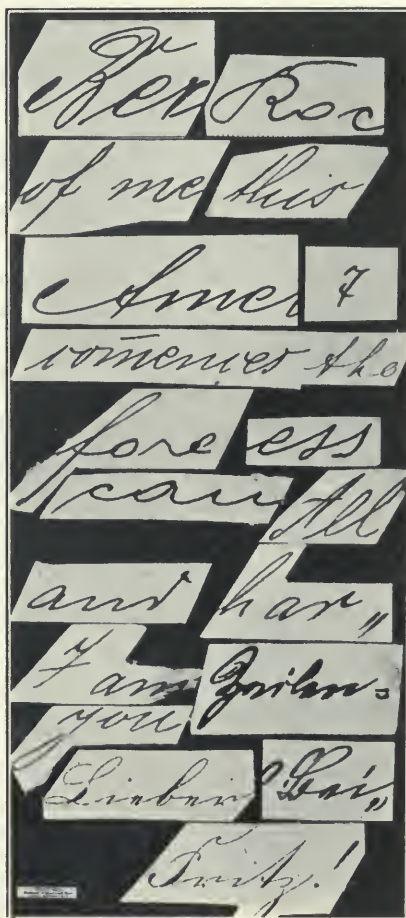 Ber Roc
of me this
Amer 7
comences the
fore ess
can All
and har„
7 am Zeilen=
you
Lieber Bei„
Fritz!